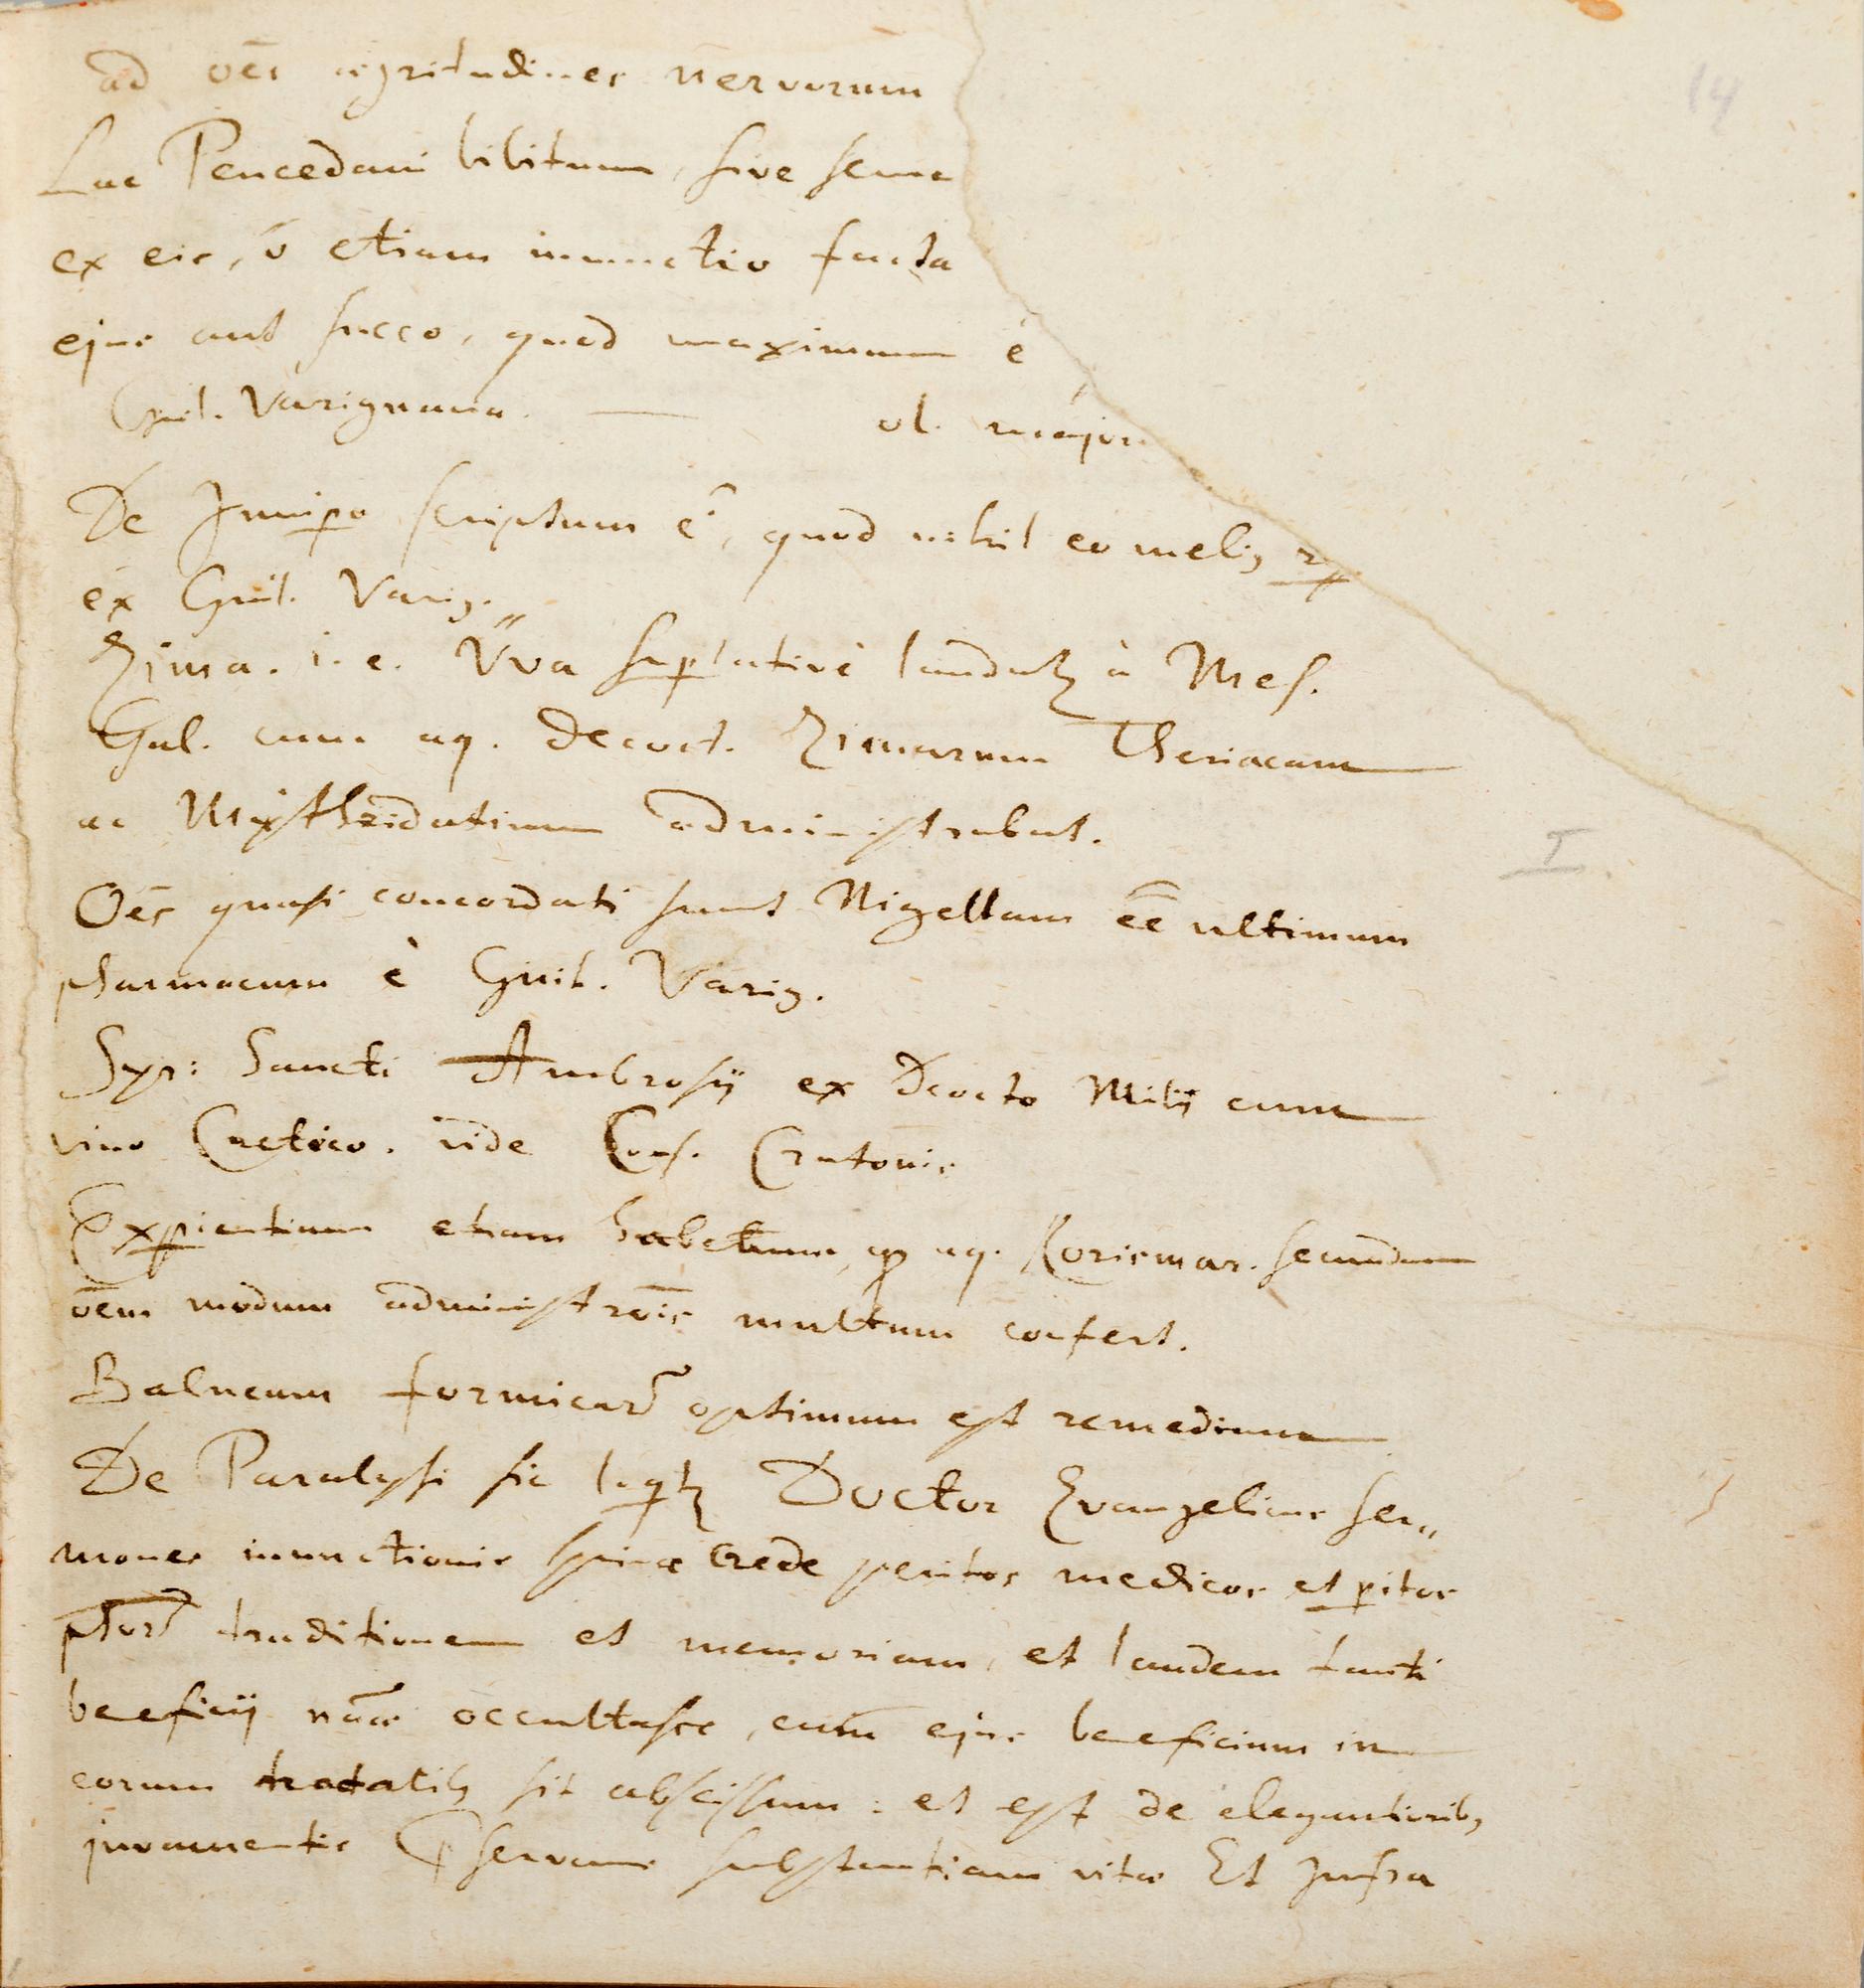 14
ad oēs ægritudines nervorum
Lac Peucedani bibitum, sive seme
ex eis, ū etiam inunctio facta
ejus aut succo, quod maximum ē
Guil. Varignana. — ol. major
De Junip̱o scriptum ē, quod nihil eo meliꝰ
ex Guil. Varig.
Zima. i. e. Uva sup̱lative laudatꝛ à Mes.
Gal. cum aq. decoct. Zimarum Theriacam
ac Mythridatium administrabat.
Oēs quasi concordati sunt Nigellam eē ultimum
pharmacum è Guil. Varig.
Syr: Sancti Ambrosij ex Decocto Milij cum
vino Cretico. vide Cons. Cratonis
Exp̱ientium etiam habetum, qd aq. Rorismar. secundum
ōem modum administrōis multum confert.
Balneum formicarū optimum est remedium
De Paralysi sic loqtꝛ Doctor Evangelicus ser„
mones inunctionis spinæ crede peritos medicos et p̱itos
phorū traditionem et memoriam, et laudem tanti
beneficij occultasse, cum ejus beneficium in
eorum tractatibꝰ sit abscissum: et est de elegantioribꝰ
juvamentis p̄servans substantiam vitæ Et Infra
I.